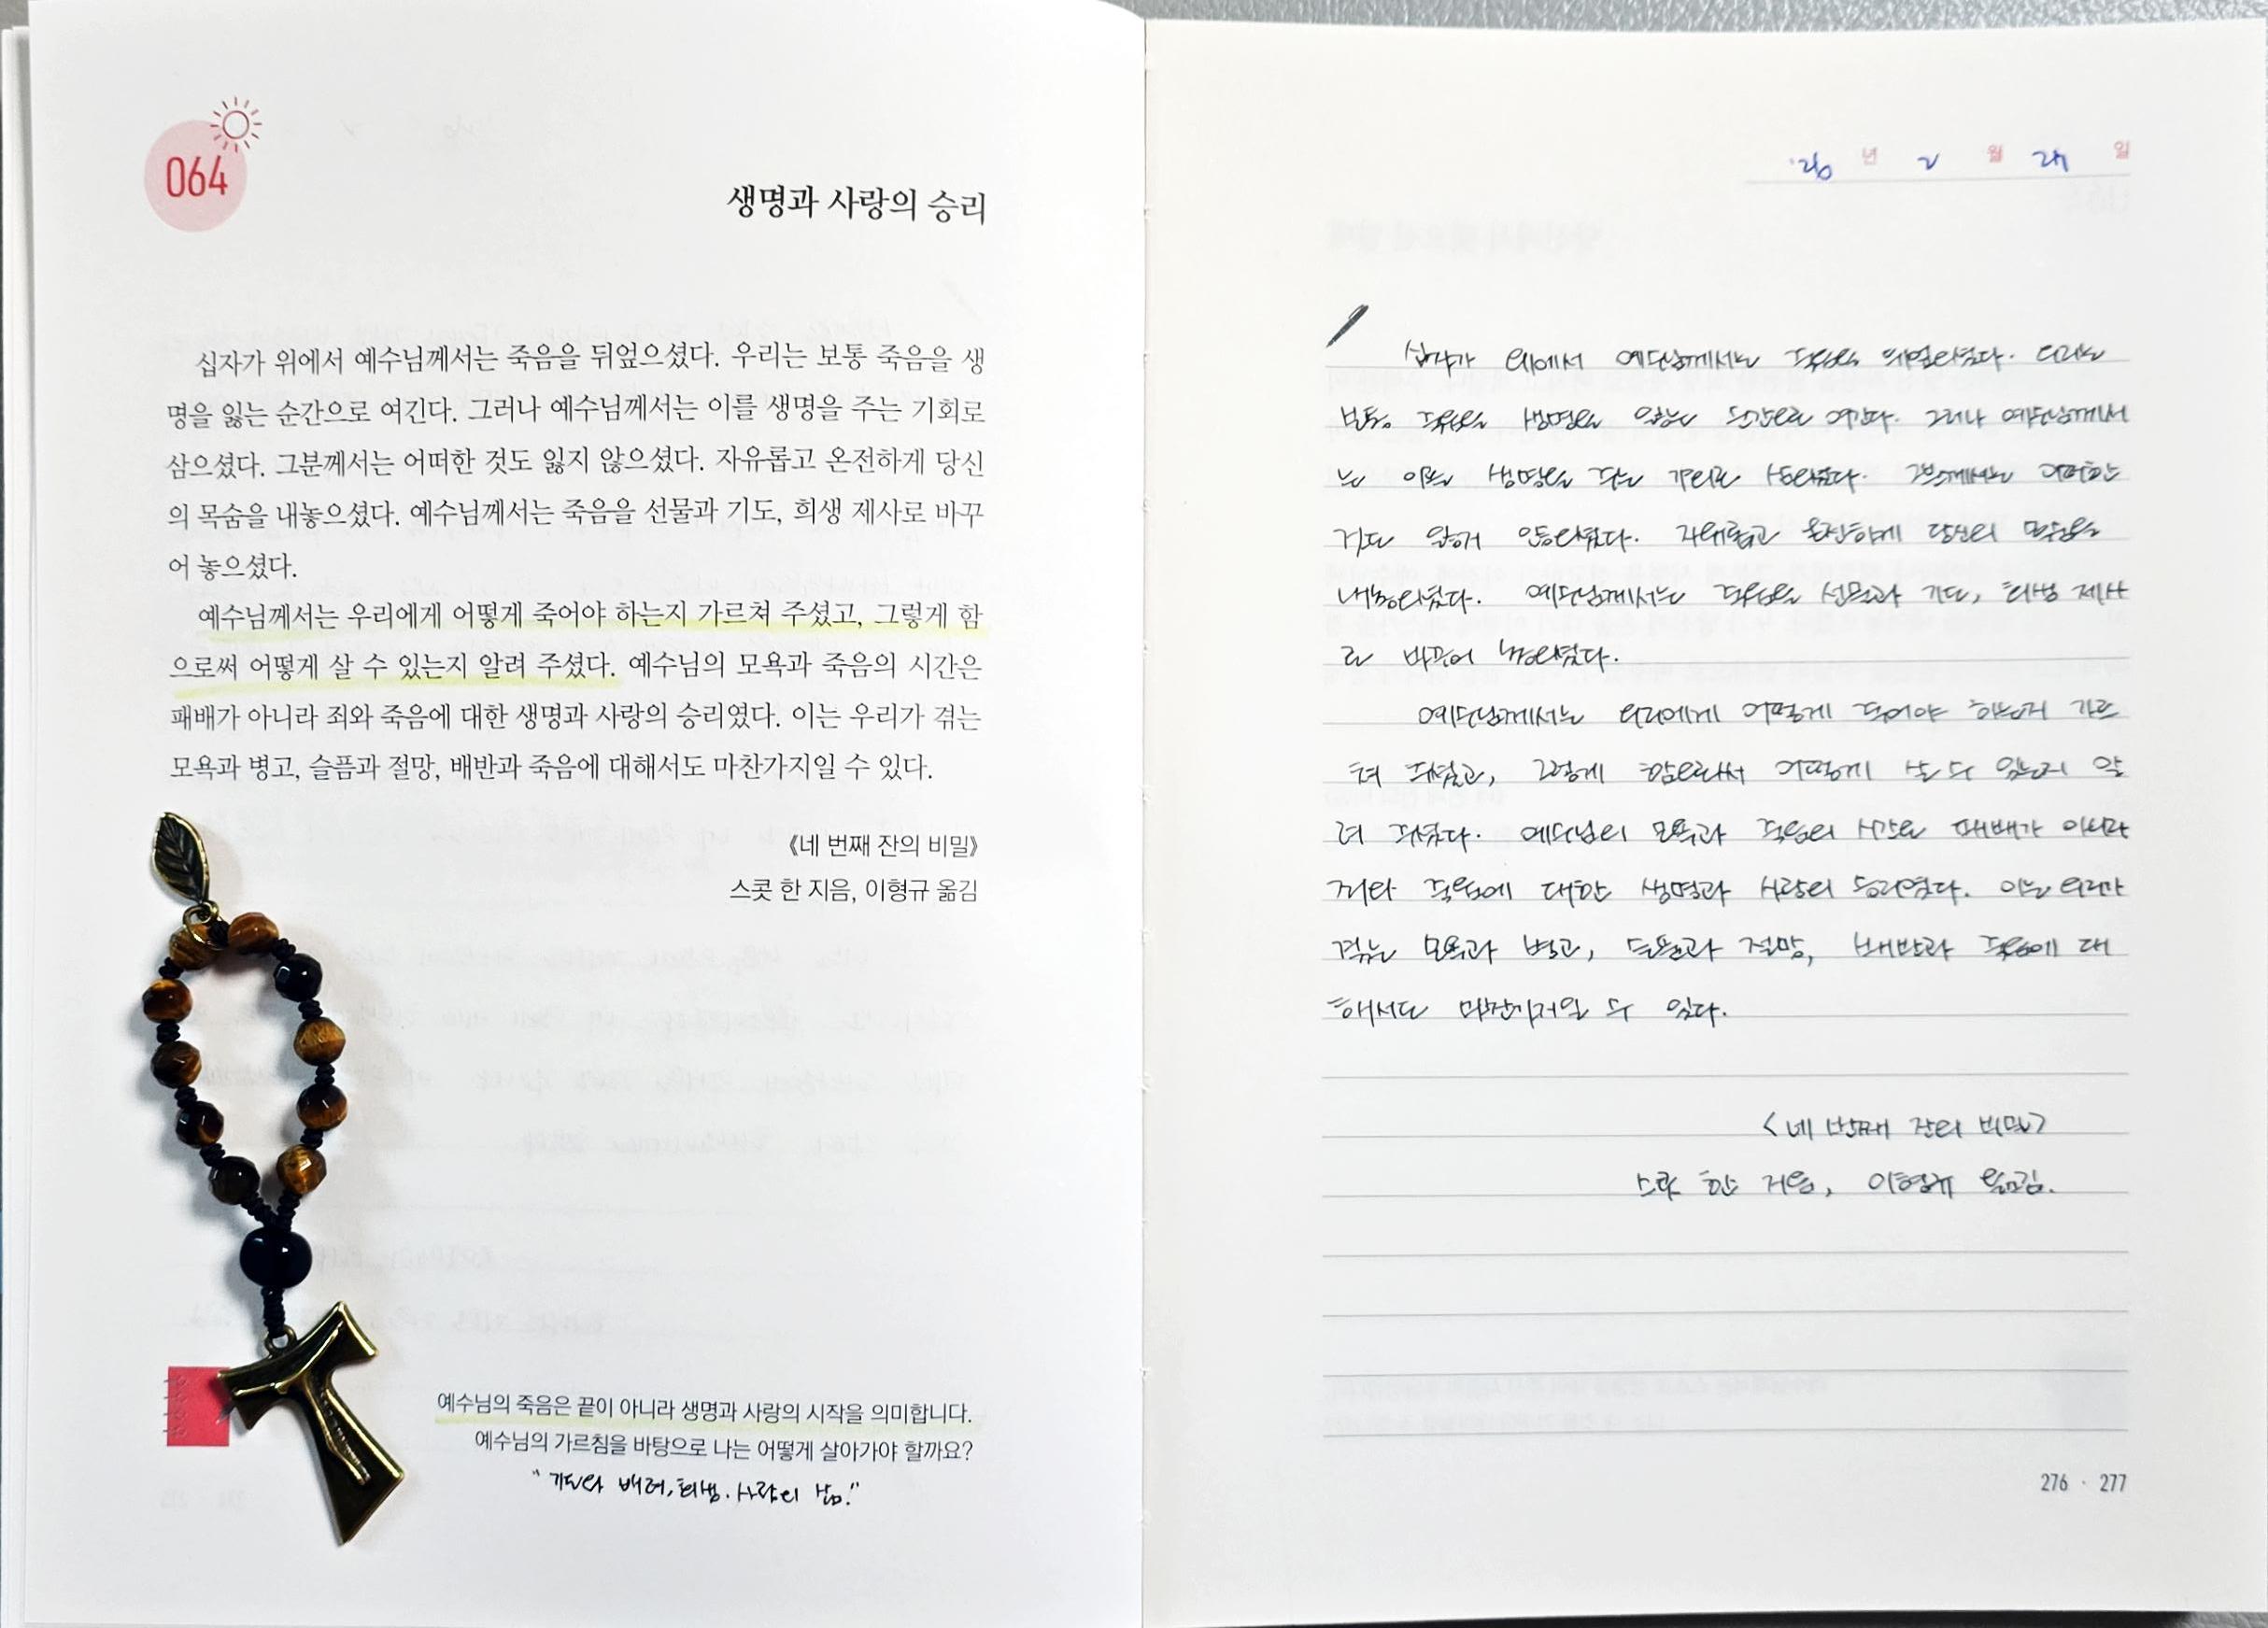 064
생명과 사랑의 승리
십자가 위에서 예수님께서는 죽음을 뒤엎으셨다. 우리는 보통 죽음을 생
명을 잃는 순간으로 여긴다. 그러나 예수님께서는 이를 생명을 주는 기회로
삼으셨다. 그분께서는 어떠한 것도 잃지 않으셨다. 자유롭고 온전하게 당신
의 목숨을 내놓으셨다. 예수님께서는 죽음을 선물과 기도, 희생 제사로 바꾸
어 놓으셨다.
예수님께서는 우리에게 어떻게 죽어야 하는지 가르쳐 주셨고, 그렇게 함
으로써 어떻게 살 수 있는지 알려 주셨다. 예수님의 모욕과 죽음의 시간은
패배가 아니라 죄와 죽음에 대한 생명과 사랑의 승리였다. 이는 우리가 겪는
모욕과 병고, 슬픔과 절망, 배반과 죽음에 대해서도 마찬가지일 수 있다.
《네 번째 잔의 비밀》
스콧 한 지음, 이형규 옮김
예수님의 죽음은 끝이 아니라 생명과 사랑의 시작을 의미합니다.
예수님의 가르침을 바탕으로 나는 어떻게 살아가야 할까요?
"기도와 배려, 희생. 사랑의 삶."
'26 년 2 월 일
십자가 위에서 예수님께서는 죽음을 뒤엎으셨다. 우리는
보통 죽음을 생명을 잃는 순간으로 여긴다. 그러나 예수님께서
는 이를 생명을 주는 기회로 삼으셨다. 그분께서는 어떠한
것도 잃지 않으셨다. 자유롭고 온전하게 당신의 목숨을
내놓으셨다. 예수님께서는 죽음을 선물과 기도, 희생 제사
로 바꾸어 놓으셨다.
예수님께서는 우리에게 어떻게 죽어야 하는지 가르
쳐 주셨고, 그렇게 함으로써 어떻게 살 수 있는지 알
려 주셨다. 예수님의 모욕과 죽음의 시간은 패배가 아니라
죄와 죽음에 대한 생명과 사랑의 승리였다. 이는 우리가
겪는 모욕과 병고, 슬픔과 절망, 배반과 죽음에 대
해서도 마찬가지일 수 있다.
<네 번째 잔의 비밀>
스콧 한 지음, 이형규 옮김.
276 · 277